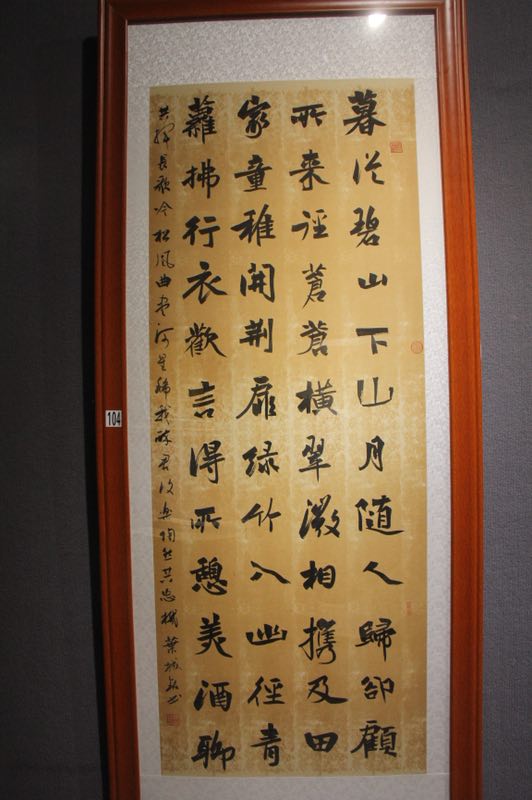 暮從碧山下山月随人歸卻顧
所来徑蒼蒼橫翠微相携及田
家童稚開荆扉绿竹入幽徑青
蘿拂行衣歡言得所憩美酒聊
共揮長歌吟松風曲尽河星稀我醉君復樂陶然共忘機葉书
104